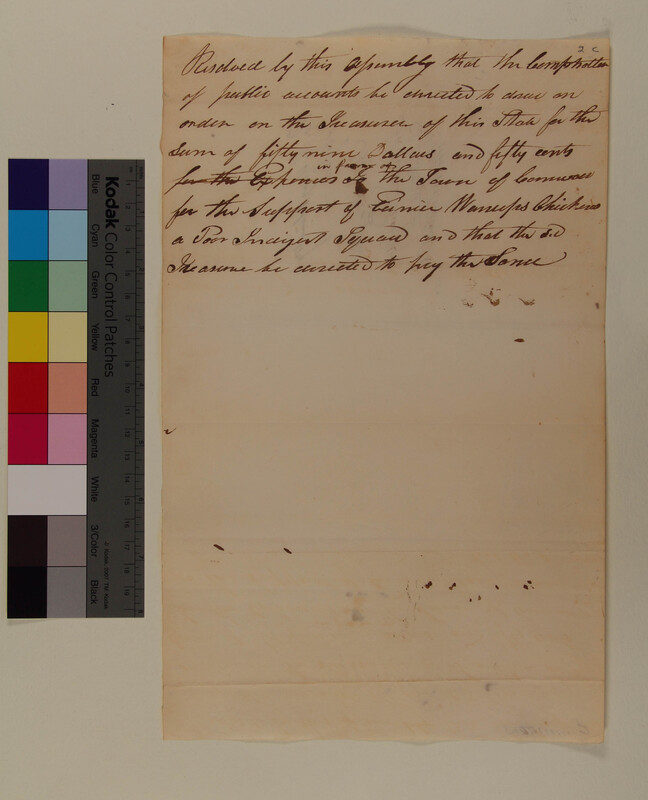 2 c
Resolved by this Assembly that the Comptroller
of public accounts be directed to draw an
order on the Treasurer of this State for the
Sum of fifty nine Dollars and fifty cents
in favor of
for the Expences the Town of Cornwall
for the Support of Eunice Chickens
a Poor Indigent Squaw and that the sd
Treasurer be directed to pay the Same
Kodak Color Control Patches
Blue
Cyan
Green
Yellow
Red
Magenta
White
3/Color
Black